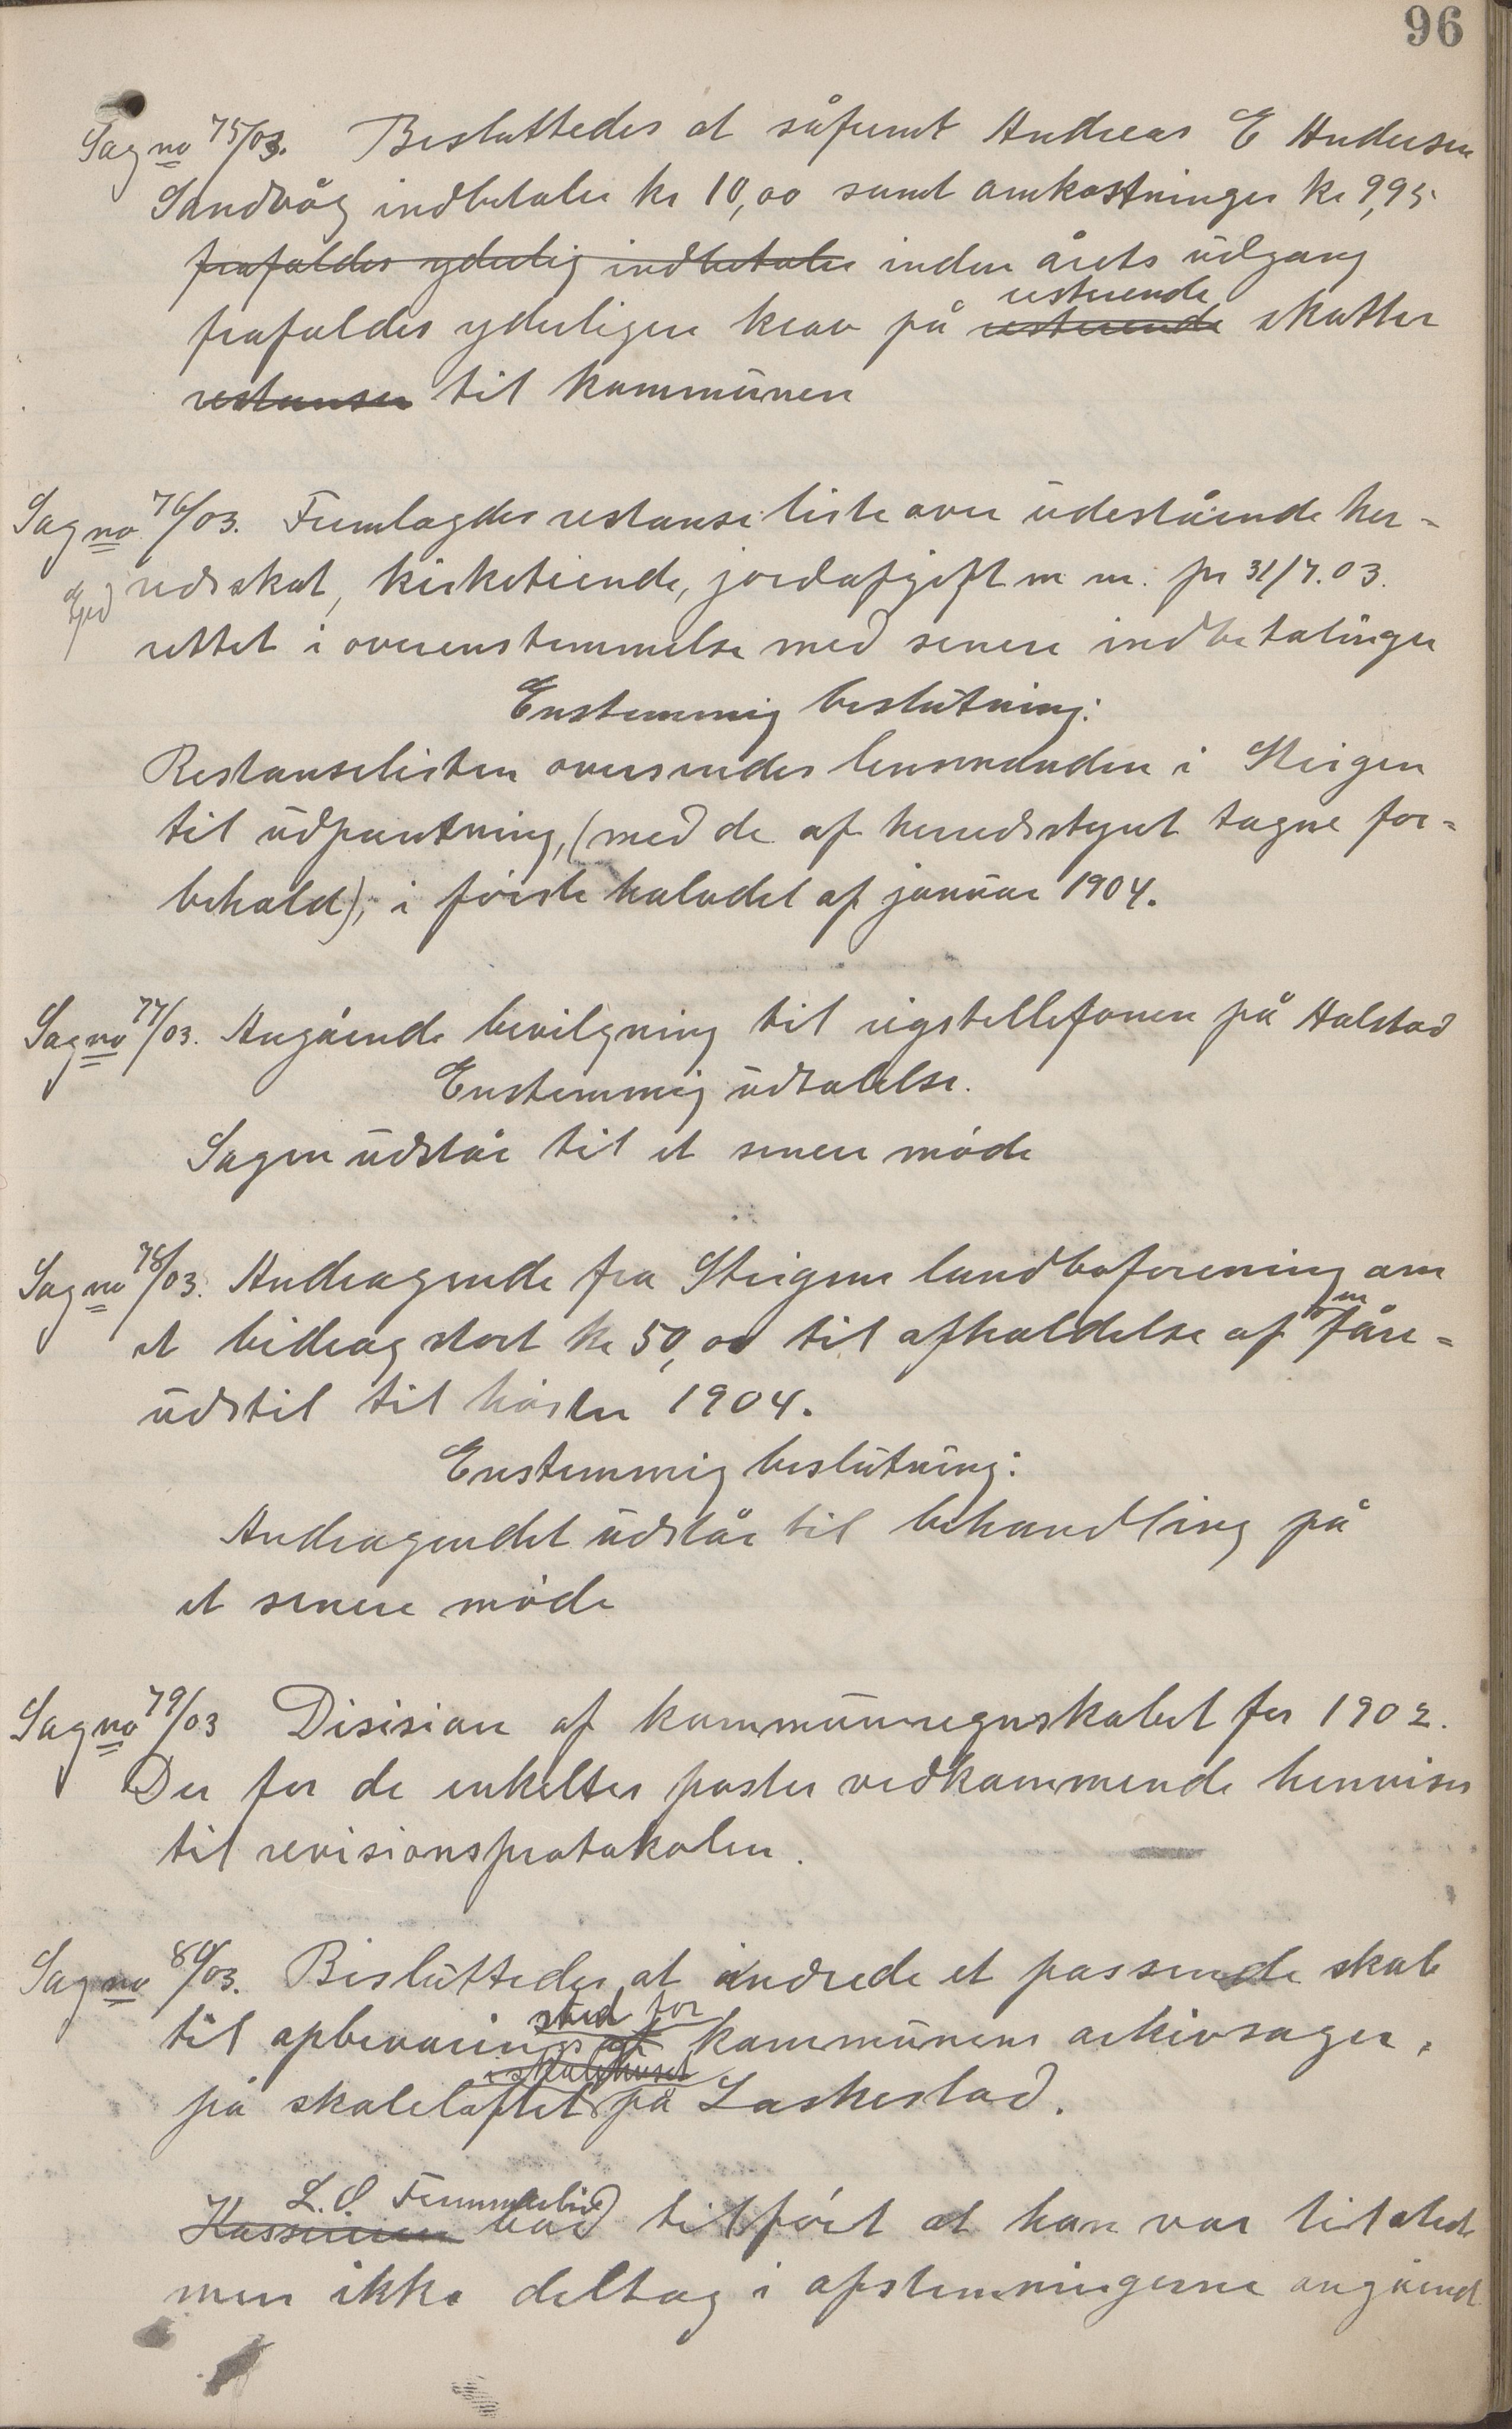 96
Sag no 75/03. Besluttedes at såfremt Andreas E Andersen
Sandvåg indbetaler kr 10,00 samt omkostninger kr 9,95
frafaldes yderlig indbetaler inden årets udgang
resterende
frafaldes yderligere krav på resterende skatter
restanser til kommunen
Sag no 76/03. Fremlagdes restanseliste over udestående her=
redsskat, kirketiende, jordafgift m m. pr 31/7.03.
rettet i overenstemmelse med senere indbetalinger
Enstemmig beslutning:
Restanselisten oversendes lensmanden i Steigen
til udpantning, (med de af herredsstyret tagne for=
behold), i første halvdel af januar 1904.
Sag no 77/03. Angående bevilgning til rigstellefonen på Halstad
Enstemmig udtalelse.
Sagen udstår til et senere møde
Sag no 78/03. Andragende fra Steigens landboforening om
et bidrag stort kr 50,00 til afholdelse af en fåre=
udstil til høsten 1904.
Enstemmig beslutning:
Andragendet udstår til behandling på
et senere møde
Sag no 79/03 Disision af kommuneregnskabet for 1902.
Der for de enkelte poster vedkommende henvises
til revisionsprotokolen.
Sag no 80/03. Besluttedes at indrede et passende skab
sted for
til opbevarings af kommunens arkivsager,
i skolehuset
på skoleloftet på Laskestad.
L. S.
bad tilført at han var tilstede
men ikke deltog i afstemningerne angående